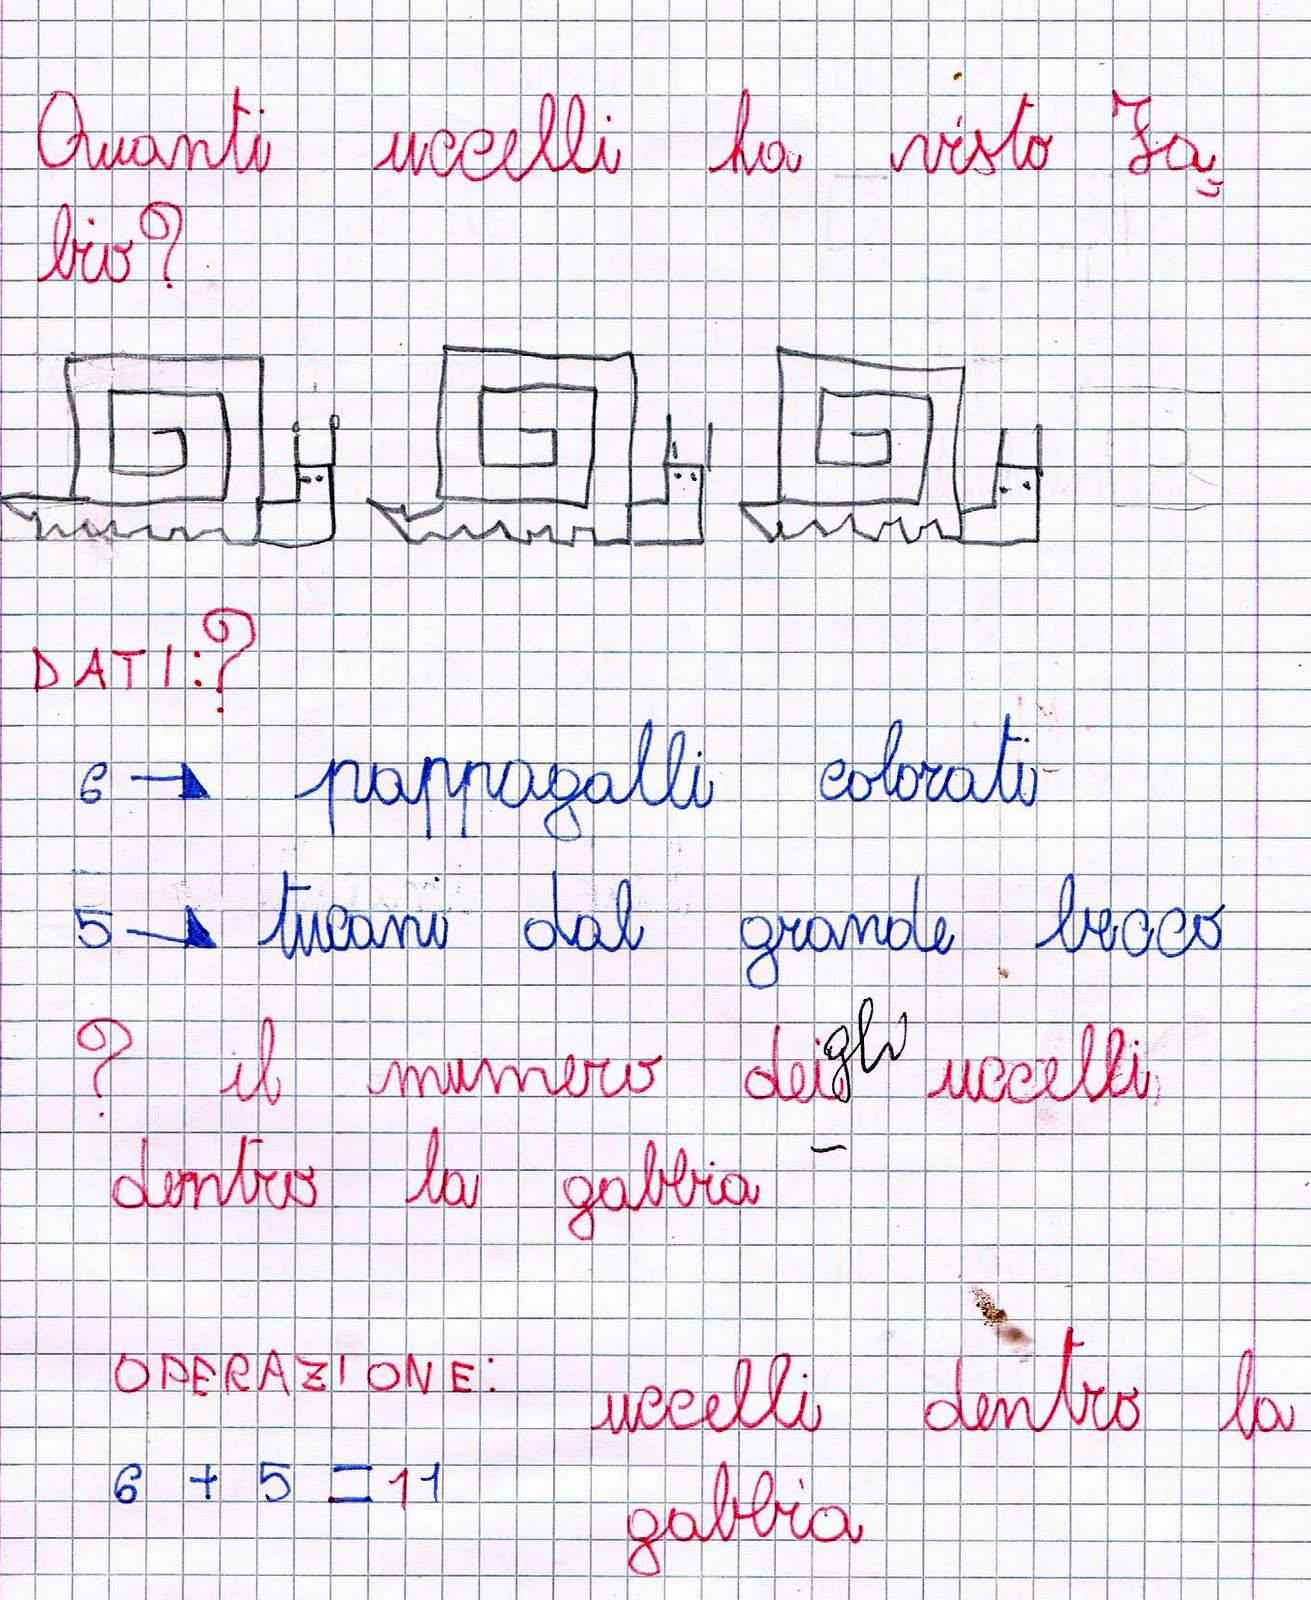 Quanti uccelli ha visto Fa=
bio?
DATI:?
6 → pappagalli colorati
5 → tucani dal grande becco
? il numero deigli uccelli
dentro la gabbia
OPERAZIONE: uccelli dentro la
6 + 5 = 11 gabbia